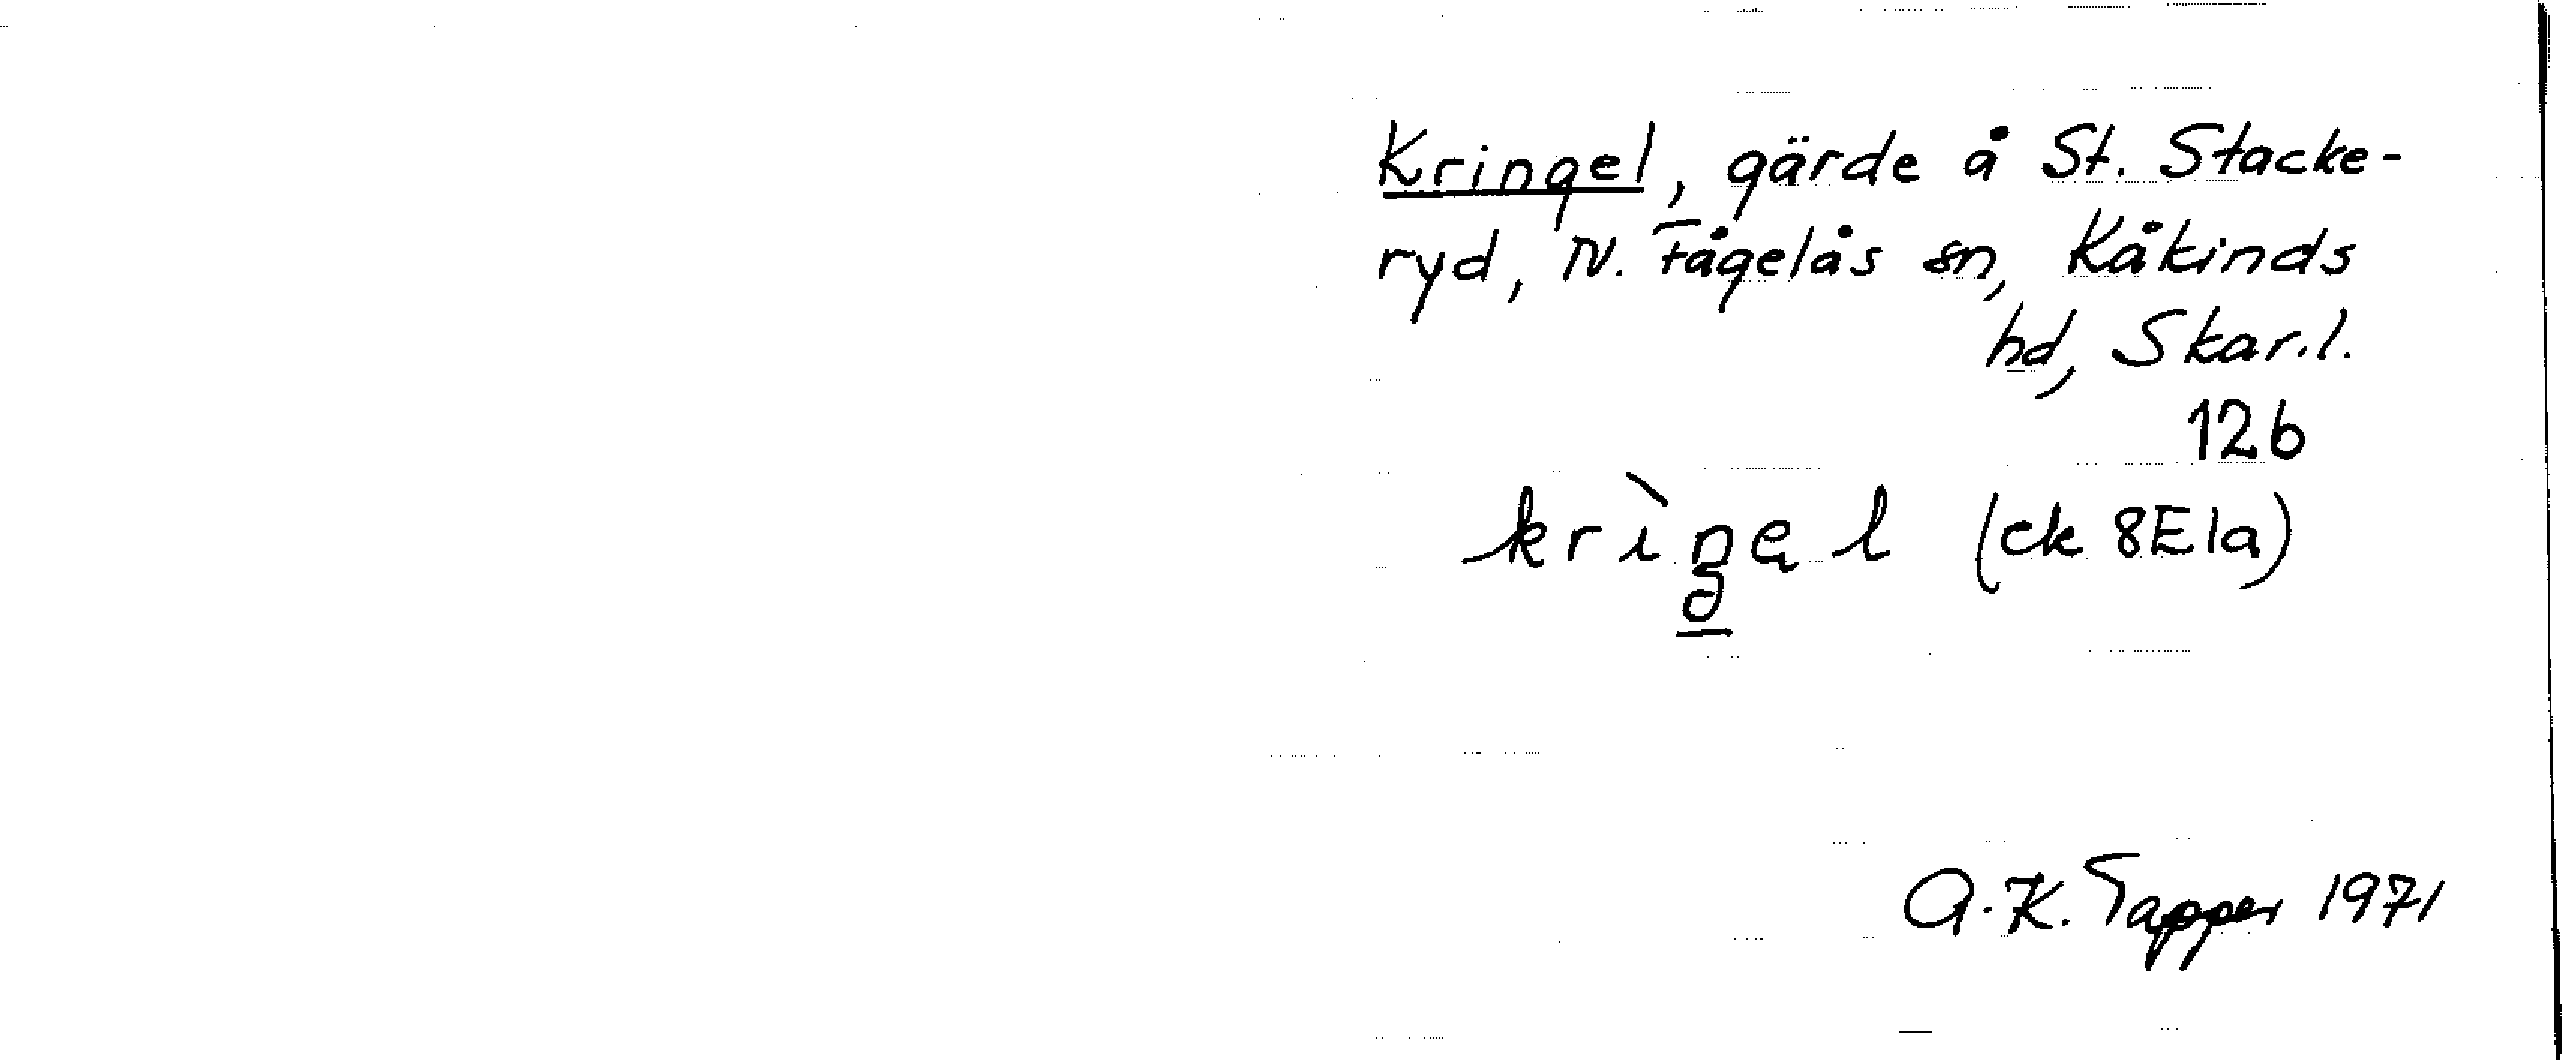 Kringel, gärde å St. Stacke-
ryd, N. Fågelås sn, Kåkinds
hd, Skar.l.
12b
krìŋel (ek 8E1a)
g
A.-K. Tapper 1971